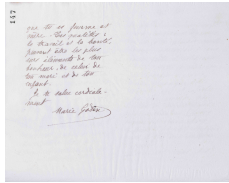 147
que tu es femme et
mère. Tes qualités :
le travail et la bonté,
peuvent être les plus
sûrs éléments de ton
bonheur, de celui de
ton mari et de ton
enfant.
Je te salue cordiale-
ment
Marie